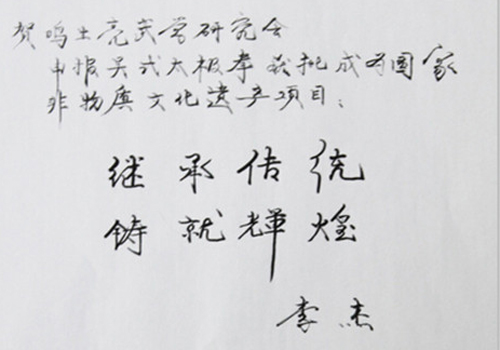 贺鸣土亮武学研究会
申报吴式太极拳获批成为国家
非物质文化遗产项目：
继承传统
铸就輝煌
李杰